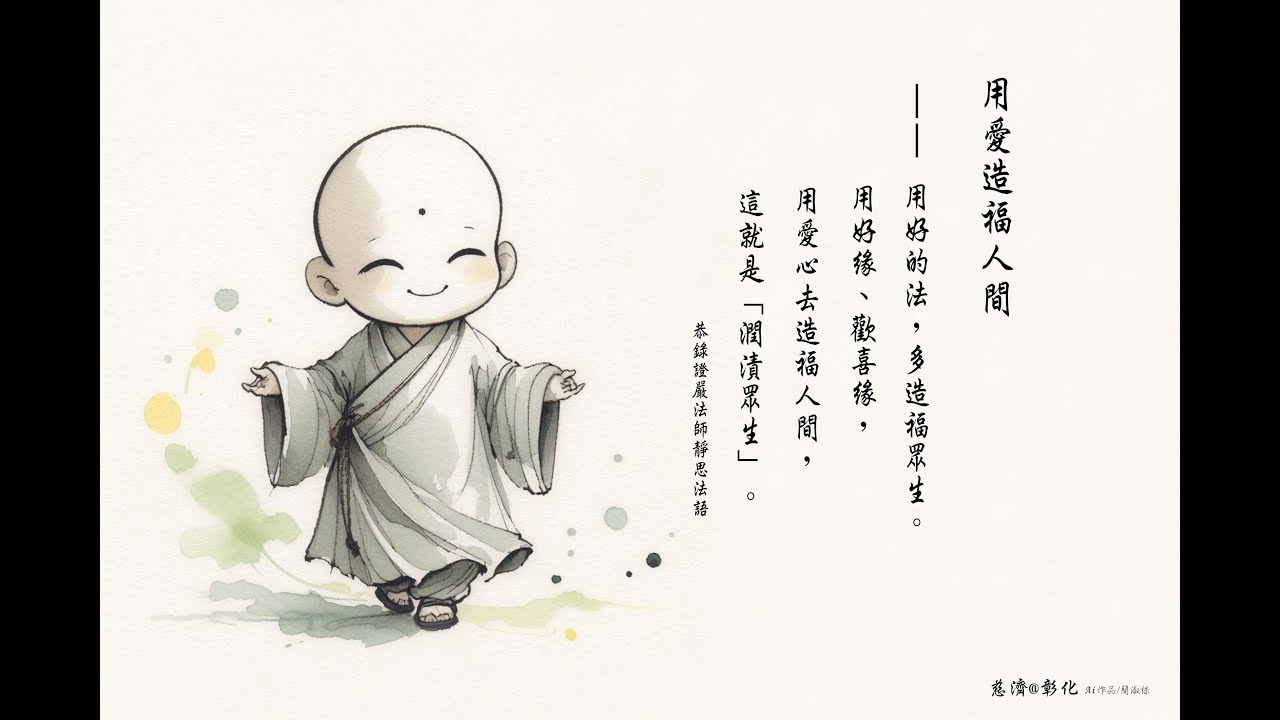 用愛造福人間
——用好的法，多造福眾生。
用好緣、歡喜緣，
用愛心去造福人間，
這就是「潤漬眾生」。
恭錄證嚴法師靜思法語
慈濟@彰化 Ai作品/簡淑絲